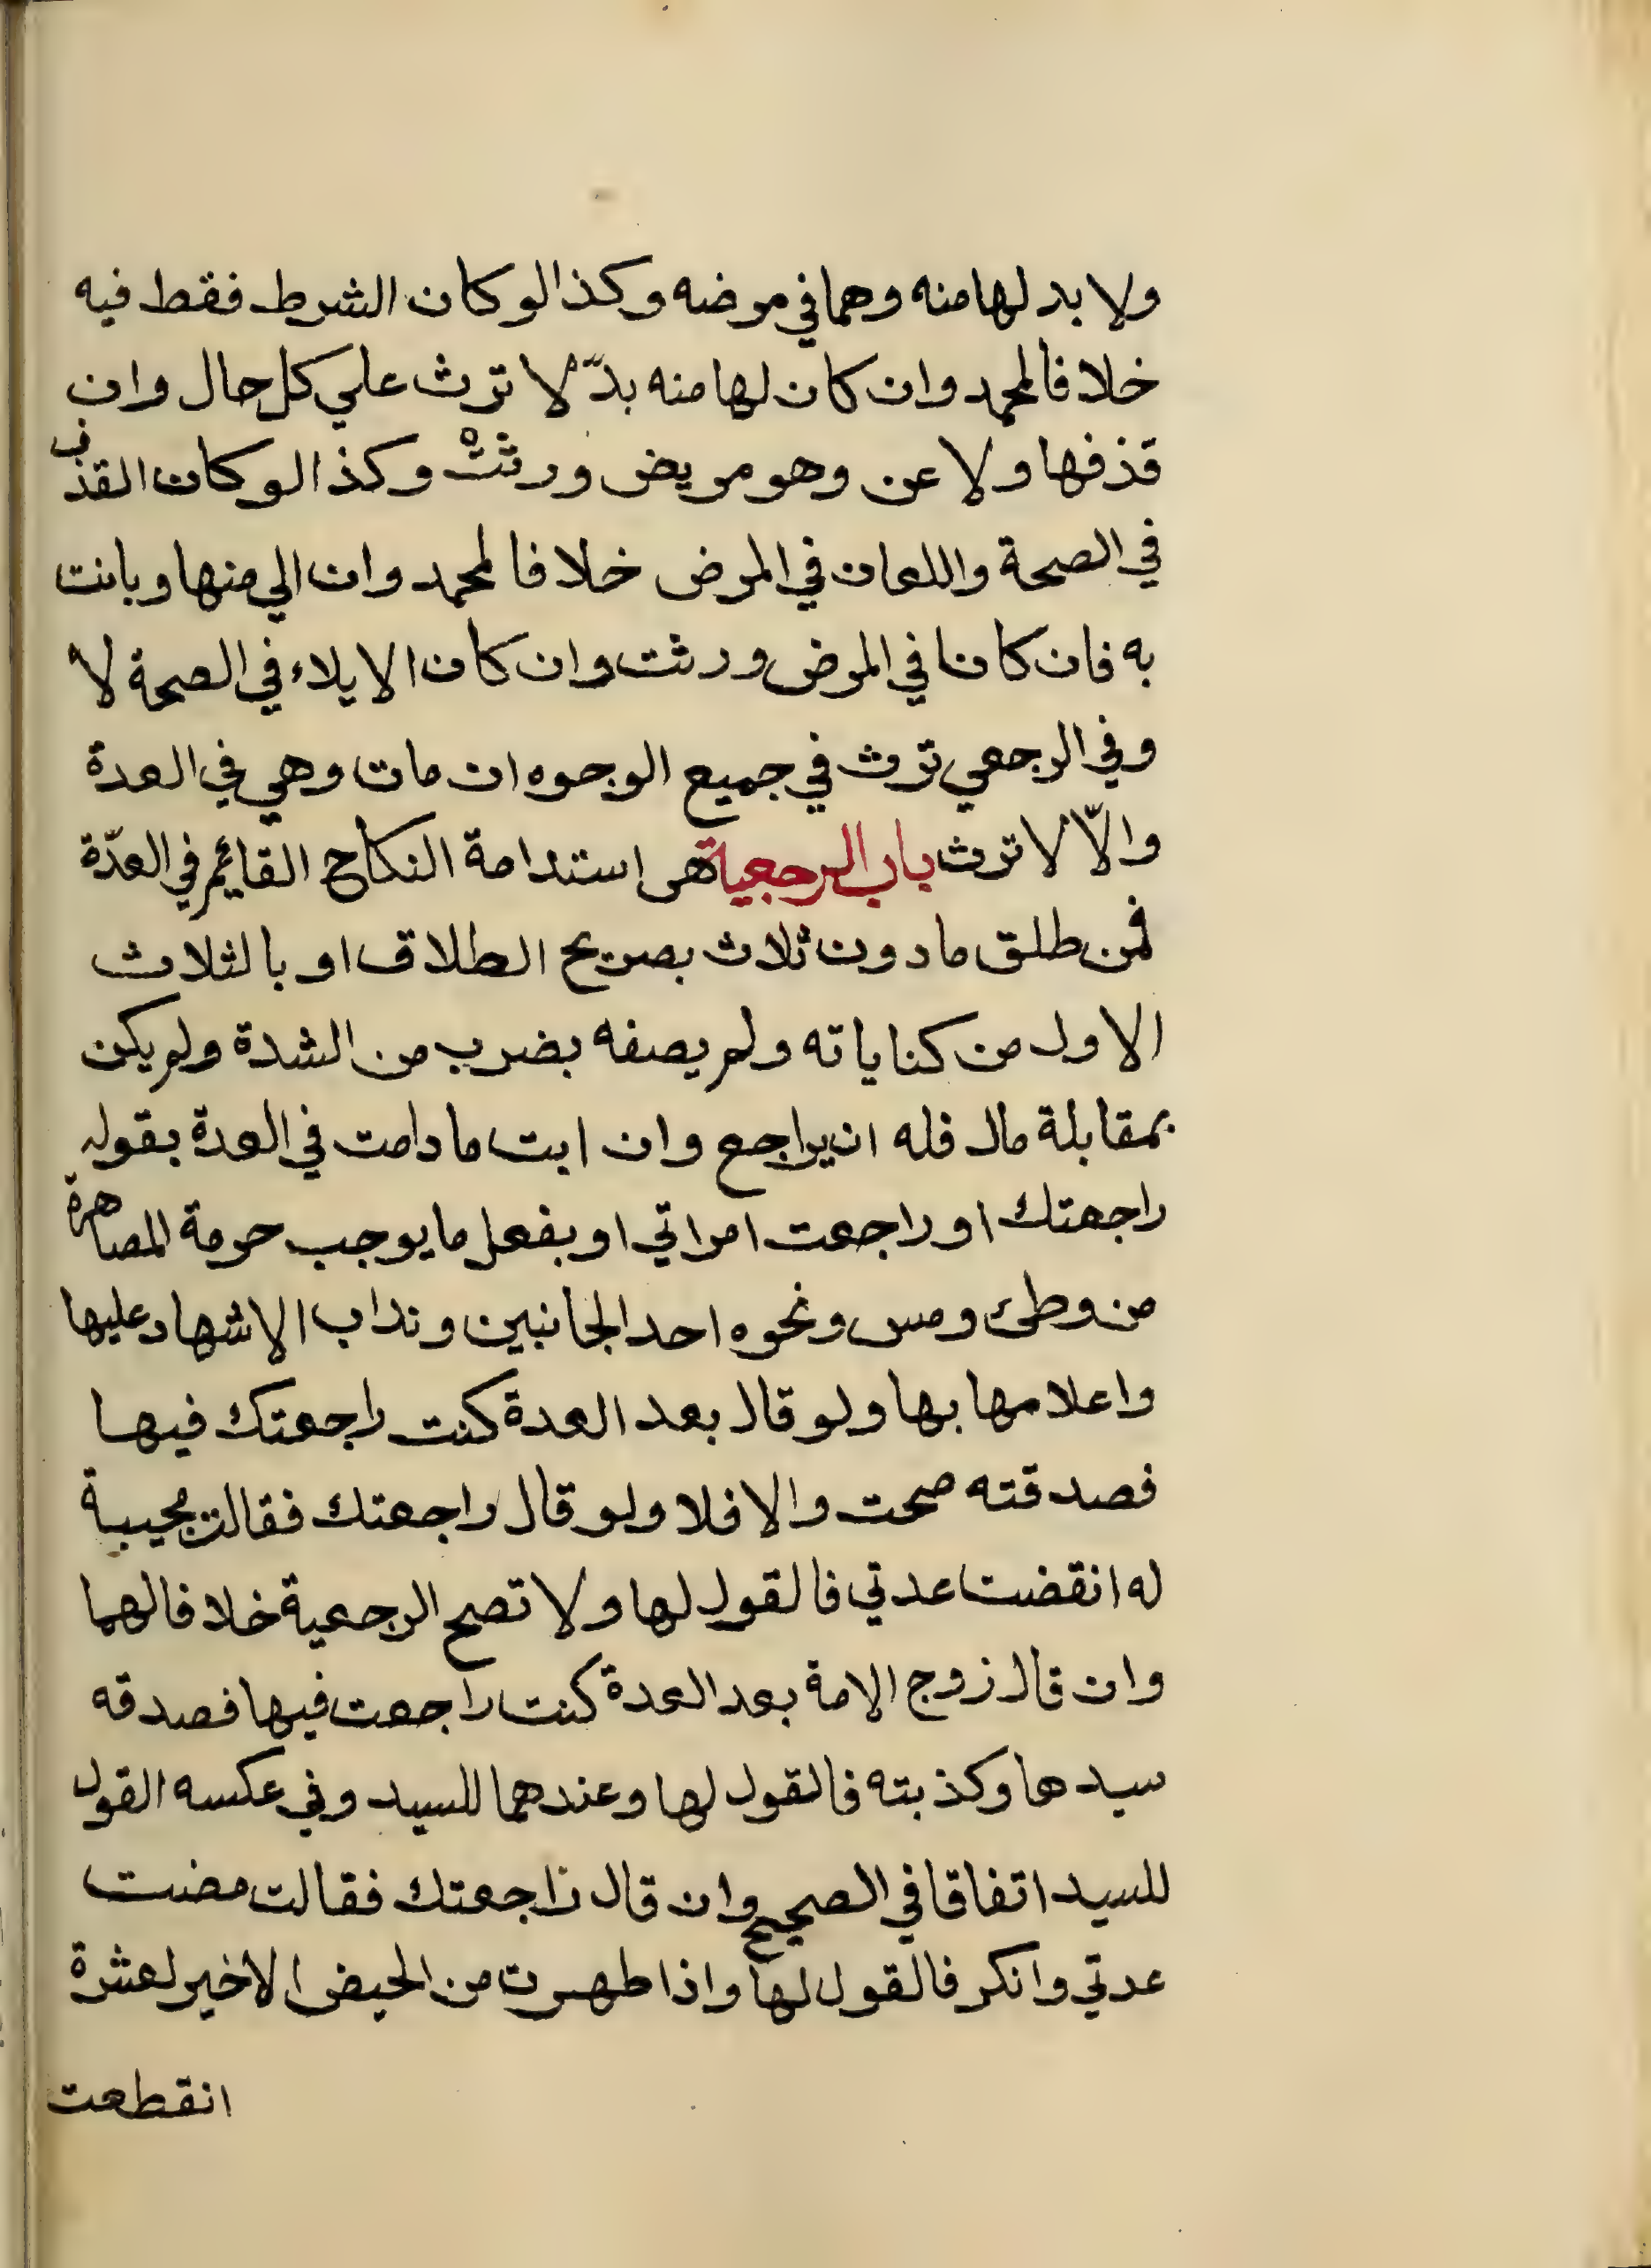 ولا بد لها منه وهما في مرضه وكذا لو كان الشرط فقط فيه
خلافا لمحمد وان كان لها منه بدّ لا ترث علي كل حال وان
قذفها ولا عن وهو مريض ورثتْ وكذا لو كان القذف
في الصحة واللعان في المرض خلافا لمحمد وان الي منها وبانت
به فان كانا في المرض ورثت وان كان الايلاء في الصحة لا
وفي الرجعي ترث في جميع الوجوه ان مات وهي في العدة
والّا لا ترث باب الرجعية هى استدامة النكاح القايم في العدّة
فمن طلق ما دون ثلاث بصريح الطلاق او بالثلاث
الاول من كناياته ولم يصفه بضرب من الشدة ولم يكن
بمقابلة مال فله ان يراجع وان ابت ما دامت في العدة بقوله
راجعتك او راجعت امراتي او بفعل ما يوجب حرمة المصاهرة
من وطئ ومس ونحوه احد الجانبين وندب الاشهاد عليها
واعلامها بها ولو قال بعد العدة كنت راجعتك فيها
فصدقته صحت والا فلا ولو قال راجعتك فقالت مجيبة
له انقضت عدتي فالقول لها ولا تصح الرجعية خلافا لهما
وان قال زوج الامة بعد العدة كنت راجعت فيها فصدقه
سيدها وكذبته فالقول لها وعندهما للسيد وفي عكسه القول
للسيد اتفاقا في الصحيح وان قال راجعتك فقالت مضت
عدتي وانكر فالقول لها واذا طهرت من الحيض الاخير لعشرة
انقطعت